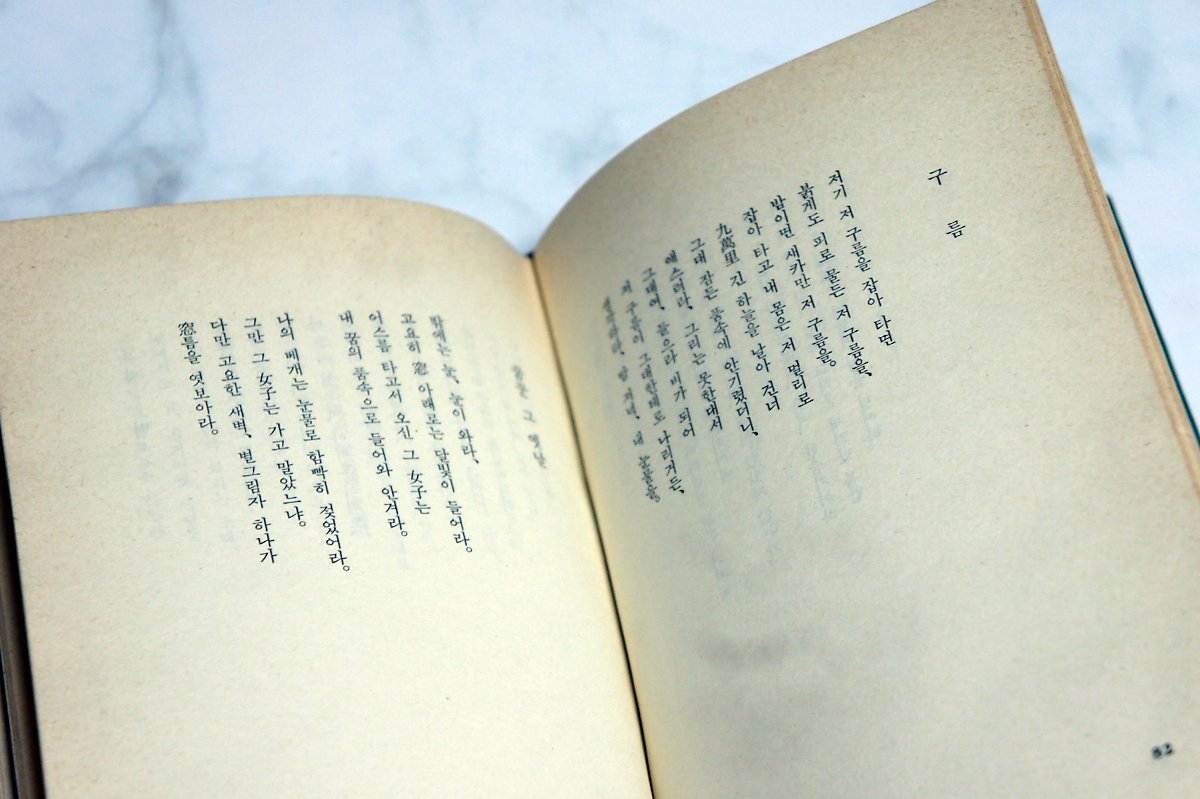 구름
저기 저 구름을 잡아 타면
붉게도 피로 물든 저 구름을,
밤이면 새카만 저 구름을.
잡아 타고 내 몸은 저 멀리로
九萬里 긴 하늘을 날아 건너
그대 잠든 품속에 안기렸더니,
애스러라, 그리는 못한대서
그대여, 들으라 비가 되어
저 구름이 그대한테로 나리거든,
밤 저녁, 내 눈물을.
82
그 옛날
밤에는 눈, 눈이 와라,
고요히 窓 아래로는 달빛이 들어라.
어스름 타고서 오신 그 女子는
내 꿈의 품속으로 들어와 안겨라.
나의 베개는 눈물로 함빡히 젖었어라.
그만 그 女子는 가고 말았느냐.
다만 고요한 새벽, 별그림자 하나가
窓틈을 엿보아라.